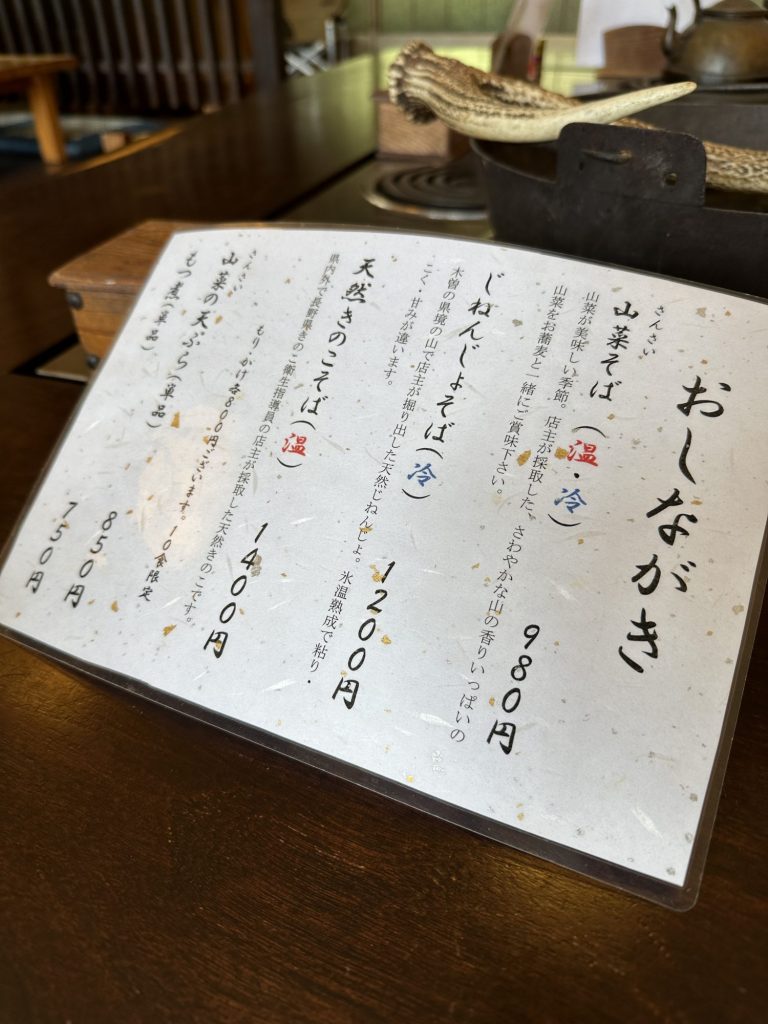 おしながき
さんさい
山菜そば（温・冷） 980円
山菜が美味しい季節。店主が採取した、さわやかな山の香りいっぱいの
山菜をお蕎麦と一緒にご賞味下さい。
じねんじょそば（冷） 1200円
木曽の県境の山で店主が掘り出した天然じねんじょ。氷温熟成で粘り・
こく・甘みが違います。
天然きのこそば（温） 1400円
県内外で長野県きのこ衛生指導員の店主が採取した天然きのこです。
もり・かけ各800円ございます。10食限定
さんさい
山菜の天ぷら（単品） 850円
もつ煮（単品） 750円